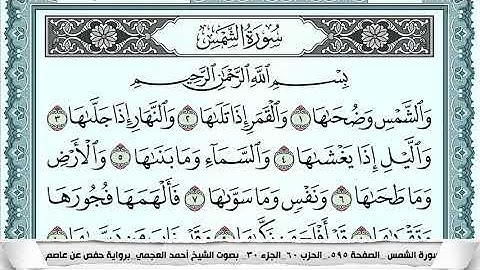 سُورَةُ الشَّمْسِ
بِسْمِ ٱللَّهِ ٱلرَّحْمَٰنِ ٱلرَّحِيمِ
وَٱلشَّمْسِ وَضُحَىٰهَا ١ وَٱلْقَمَرِ إِذَا تَلَىٰهَا ٢ وَٱلنَّهَارِ إِذَا جَلَّىٰهَا ٣
وَٱلَّيْلِ إِذَا يَغْشَىٰهَا ٤ وَٱلسَّمَآءِ وَمَا بَنَىٰهَا ٥ وَٱلْأَرْضِ
وَمَا طَحَىٰهَا ٦ وَنَفْسٍ وَمَا سَوَّىٰهَا ٧ فَأَلْهَمَهَا فُجُورَهَا
وَتَقْوَىٰهَا ٨ قَدْ أَفْلَحَ مَن زَكَّىٰهَا
سورة الشمس الصفحة ٥٩٥ الحزب ٦٠ الجزء ٣٠ بصوت الشيخ أحمد العجمي برواية حفص عن عاصم